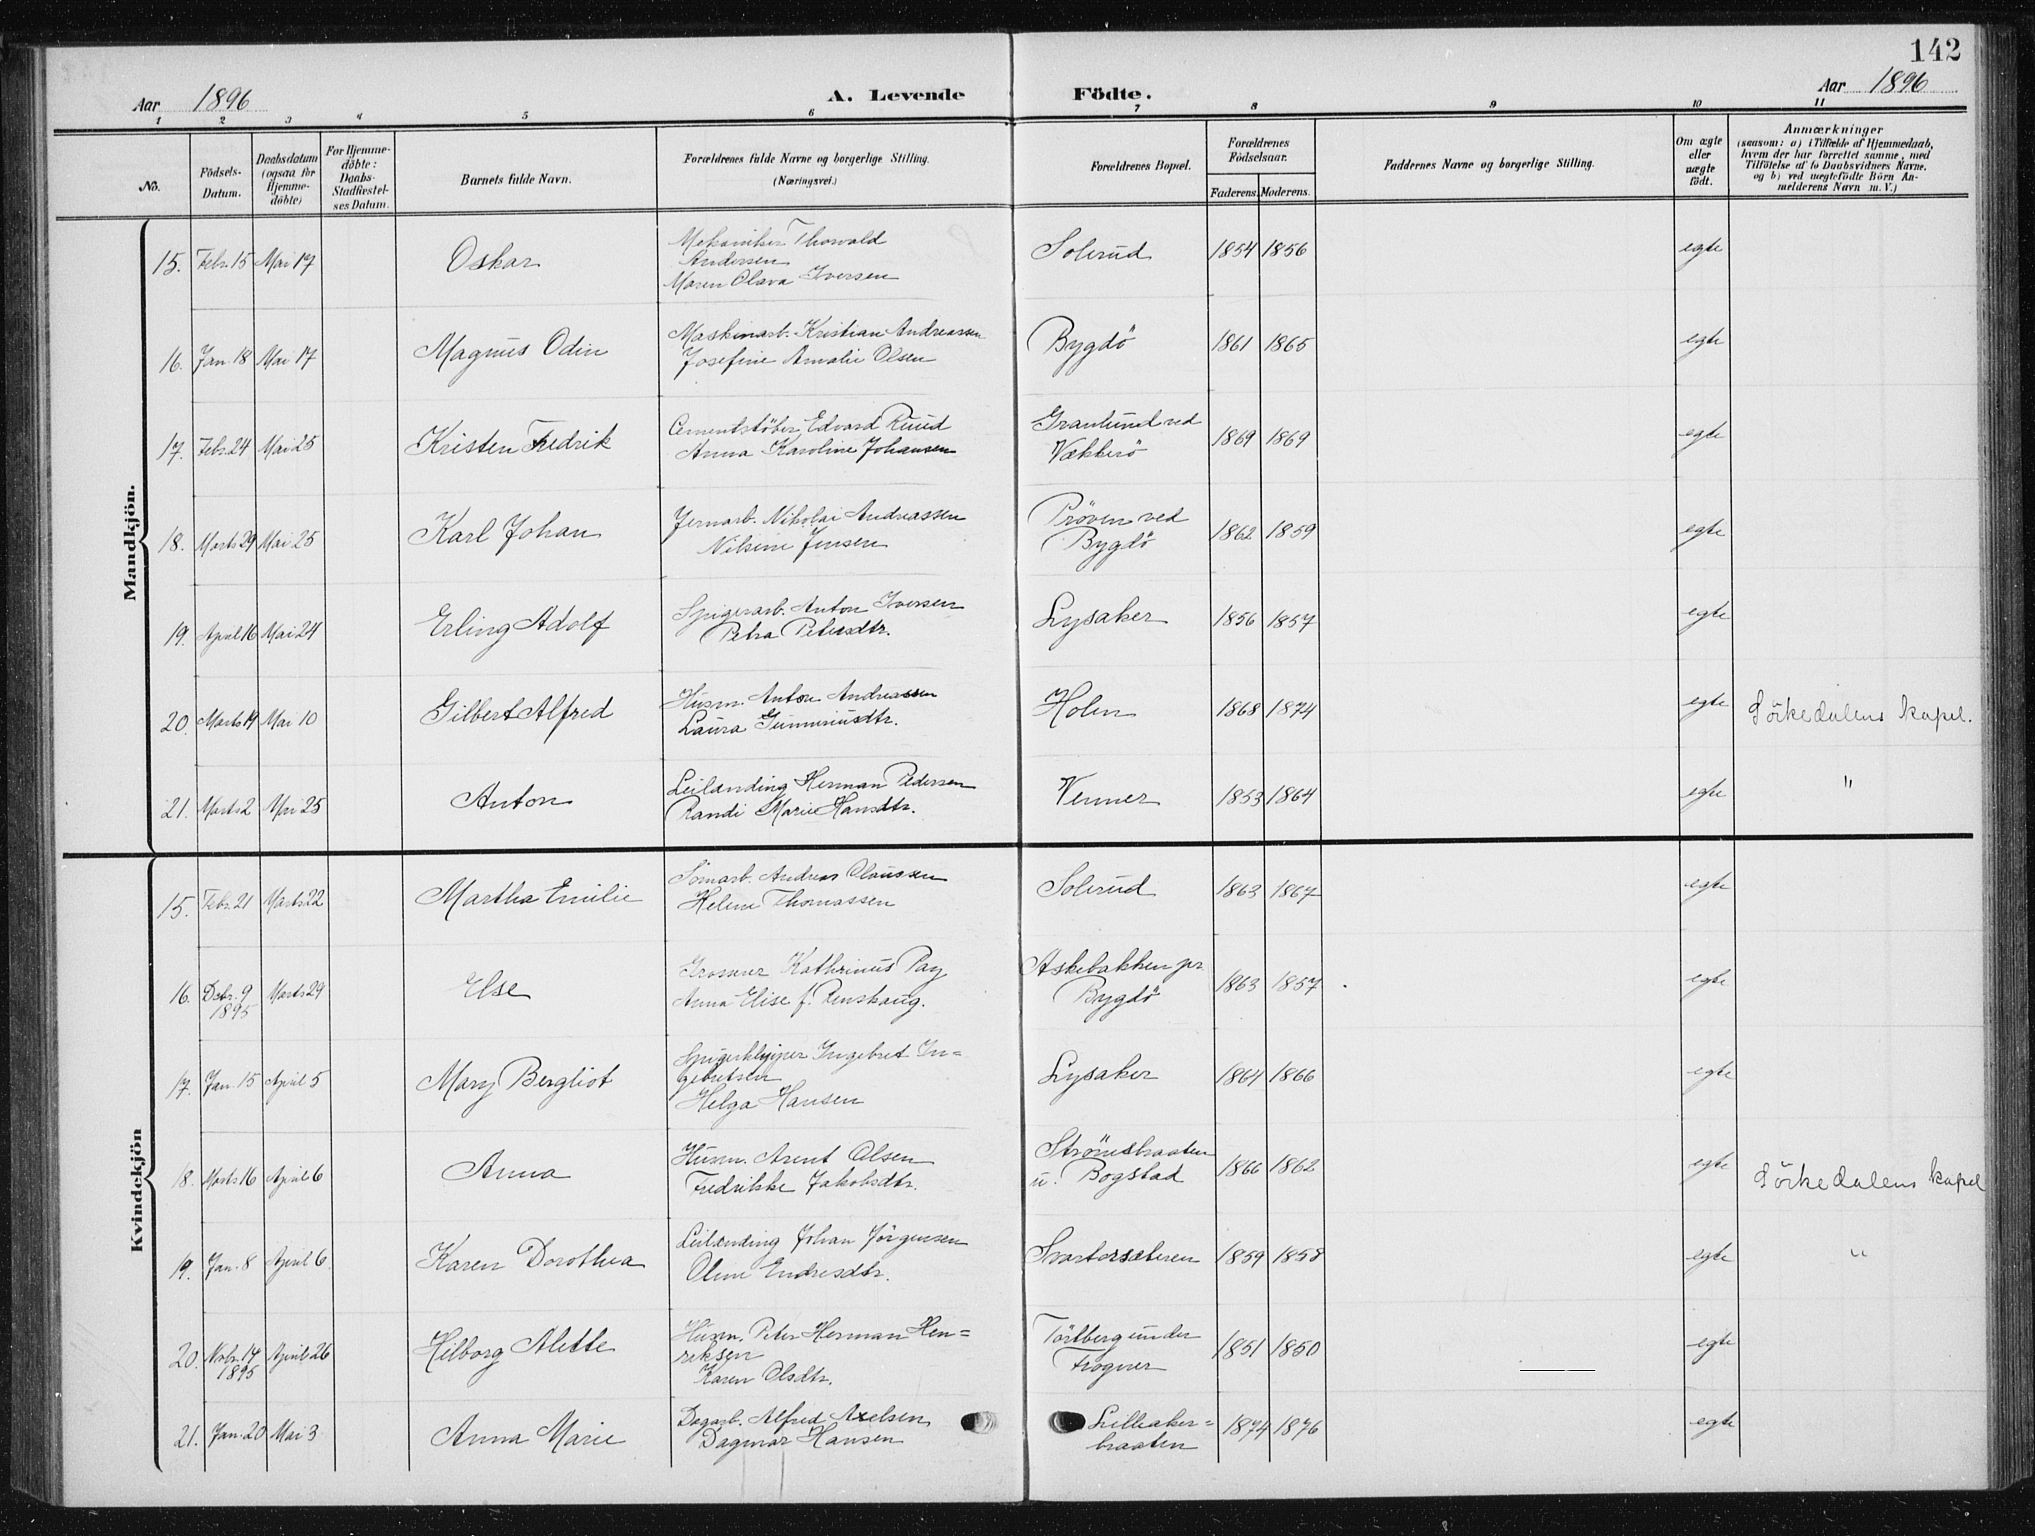 142
Aar 1896 A. Levende Födte. Aar 1896
1 2 3 4 5 6 7 8 9 10 11
No.
Födsels-
Datum.
Daabsdatum
(ogsaa for
Hjemme-
döbte)
For Hjemme-
döbte:
Daabs-
Stadfæstel-
ses Datum.
Barnets fulde Navn.
Forældrenes fulde Navne og borgerlige Stilling.
(Næringsvei.)
Forældrenes Bopæl.
Forældrenes
Födselsaar.
Faderens. Moderens.
Faddernes Navne og borgerlige Stilling.
Om ægte
eller
uægte
födt.
Anmærkninger
(saasom: a) i Tilfælde af Hjemmedaab,
hvem der har forrettet samme, med
Tilföielse af to Daabsvidners Navne.
og b) ved uægtefödte Börn An-
melderens Navn m. V.)
Mandkjön.
15. Febr. 15 Mai 17 Oskar Mekaniker Thorvald
Andersen
Maren Olava Iversen Solerud 1854 1856 egte
16. Jan. 18 Mai 17 Magnus Odin Maskinarb. Kristian Andreassen
Josefine Amalie Olsen Bygdö 1861 1865 egte
17. Febr. 24 Mai 25 Kristen Fredrik Cementstöber Edvard Ruud
Anna Karoline Johansen Granlund ved
Vækkerö 1869 1869 egte
18. Marts 29 Mai 25 Karl Johan Jernarb. Nikolai Andreassen
Nilsine Jensen Pröven ved
Bygdö 1862 1859 egte
19. April 16 Mai 24 Erling Adolf Spigerarb. Anton Iversen
Petra Petersdtr. Lysaker 1856 1857 egte
20. Marts 19 Mai 10 Gilbert Alfred Husm. Anton Andreassen
Laura Gunneriusdtr. Holen 1868 1874 egte Sörkedalens kapel.
21. Marts 2 Mai 25 Anton Leilænding Herman Pedersen
Randi Marie Hansdtr. Venner 1853 1864 egte "
Kvindekjön
15. Febr. 21 Marts 22 Martha Emilie Tömarb. Andreas Claussen
Helene Thomassen Solerud 1863 1867 egte
16. Debr. 9
1895 Marts 29 Else Grosserer Kathrinus Pay
Anna Elise f. Renskaug. Askebakken pr
Bygdö 1863 1857 egte
17. Jan. 15 April 5 Mary Bergliot Spigerklipper Ingebret In=
gebretsen
Helga Hansen Lysaker 1864 1866 egte
18. Marts 16 April 6 Anna Husm. Arent Olsen
Fredrikke Jakobsdtr. Strömsbraaten
u. Bogstad 1866 1862 egte Sörkedalens kapel
19. Jan. 8 April 6 Karen Dorothea Leilænding Johan Jörgensen
Oline Endresdtr. Svartorsæteren 1859 1858 egte "
20. Nobr. 14
1895 April 26 Hilborg Alette Husm. Peter Herman Hen=
riksen
Karen Olsdtr. Törtberg under
Frogner 1851 1850 egte
21. Jan. 20 Mai 3 Anna Marie Dagarb. Alfred Axelsen
Dagmar Hansen Lilleaker=
braaten 1874 1876 egte